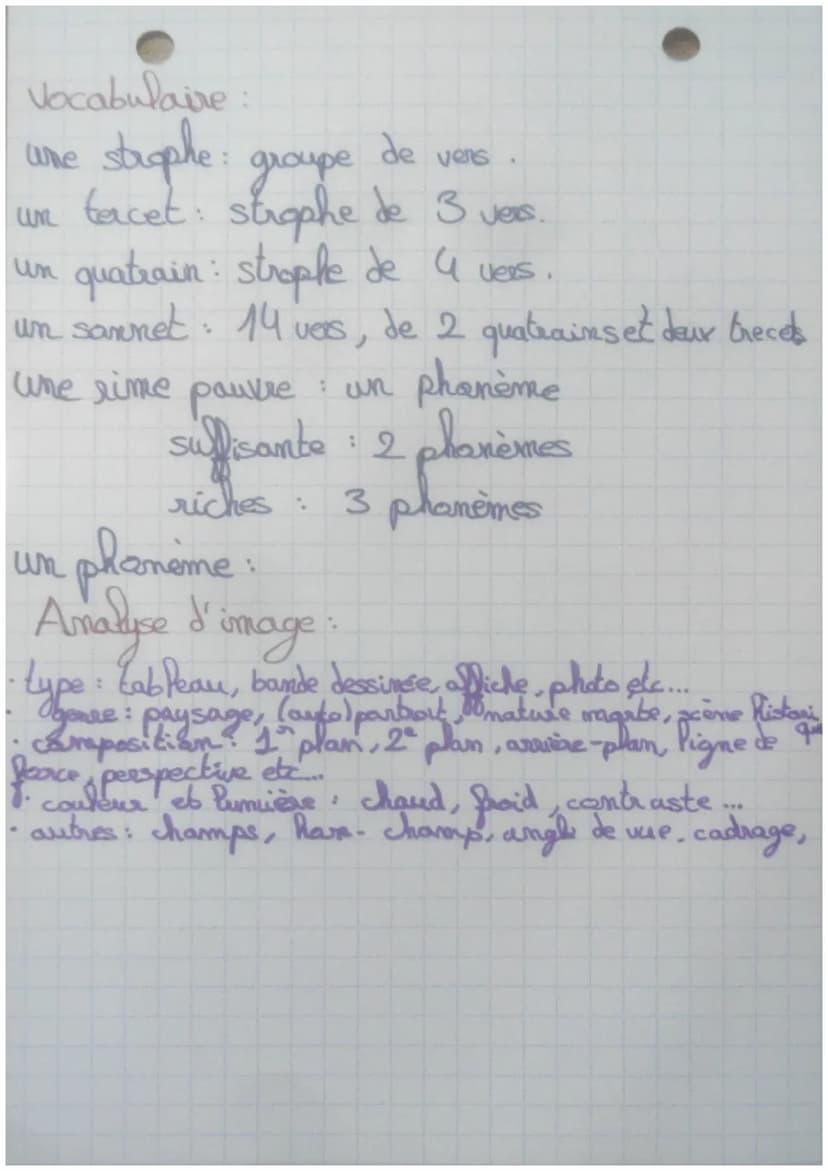 Vocabulaire :
une strophe : groupe de vers .
un tercet : strophe de 3 vers.
un quatrain : strophe de 4 vers .
un sonnet : 14 vers, de 2 quatrains et deux trecets
une rime pauvre : un phonème
suffisante : 2 phonèmes
riches : 3 phonèmes
un phonème :
Analyse d'image :
· type : tableau, bande dessinée, affiche, photo etc...
· genre : paysage, (auto)portrait, nature morte, scène histori
· composition : 1er plan, 2e plan, arrière-plan, ligne de que
force, perspective etc...
· couleur et lumière : chaud, froid, contraste ...
· autres : champs, hors-champ, angle de vue, cadrage,